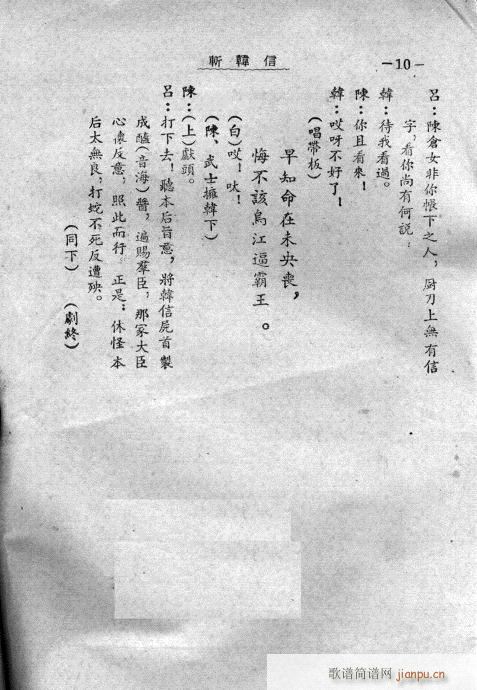 斬韓信
—10—
呂：陳倉女非你帳下之人，厨刀上無有信
字，看你尚有何說：
韓：待我看過。
陳：你且看來！
韓：哎呀不好了！
（唱帶板）
早知命在未央喪，
悔不該烏江逼霸王。
（白）哎！呔！
（陳、武士擁韓下）
陳：（上）獻頭。
呂：打下去！聽本后旨意，將韓信屍首製
成醢（音海）醬，遍賜羣臣，那家大臣
心懷反意，照此而行。正是：休怪本
后太無良，打蛇不死反遭殃。
（同下）（劇終）
歌谱简谱网 jianpu.cn